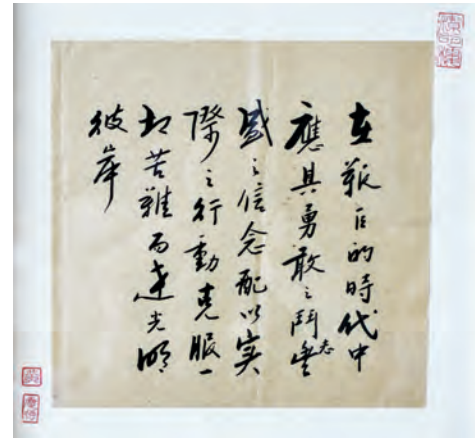 在艱巨的時代中
應具勇敢之鬥志豐
盛之信念配以实
際之行動克服一
切苦難而達光明
彼岸